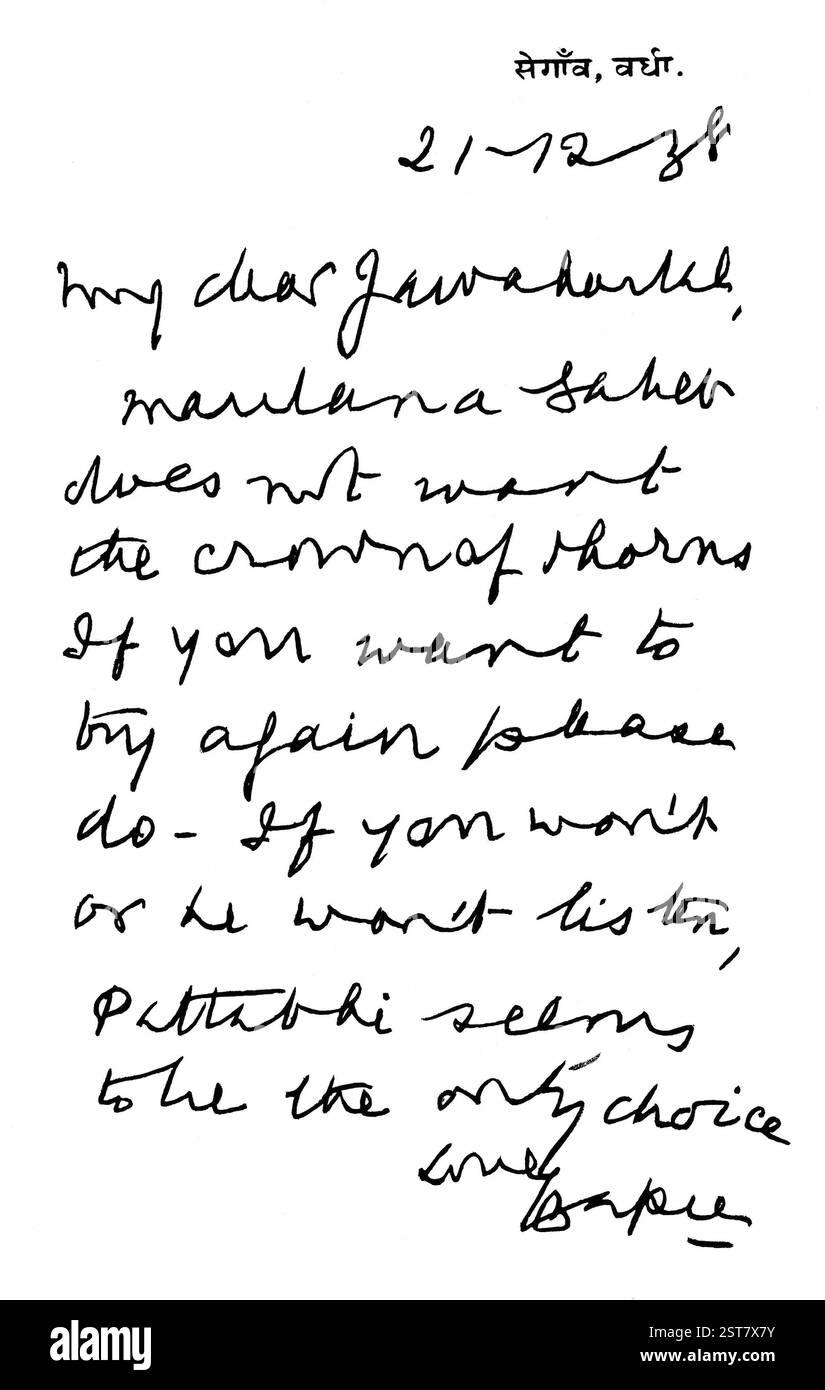 सेगाँव, वर्धा.
21-12-38
My dear Jawaharlal,
Maulana Saheb
does not want
the crown of thorns
If you want to
try again please
do - If you won't
or he won't listen,
Pattabhi seems
to be the only choice
Love
Bapu
alamy
Image ID: 2ST7X7Y
www.alamy.com